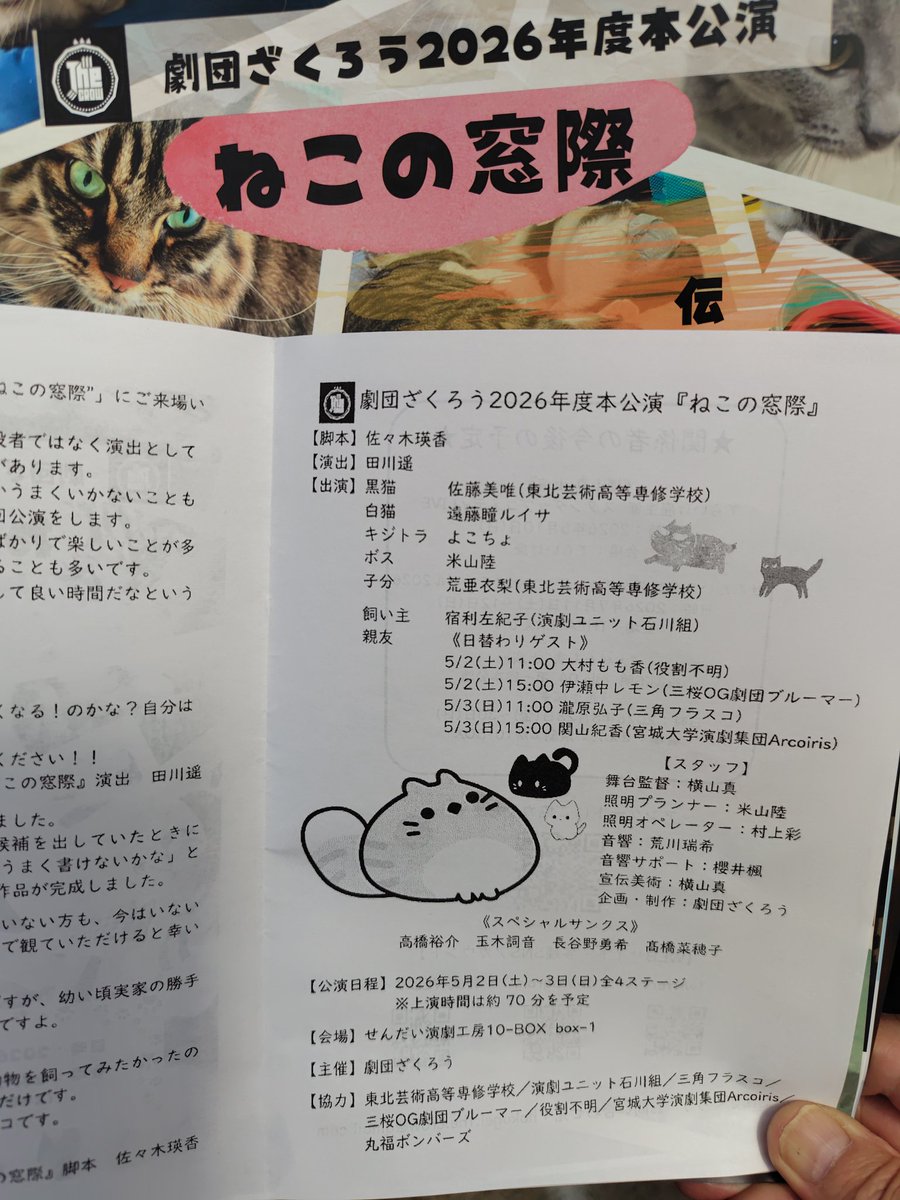 劇団ざくろう2026年度本公演
ねこの窓際
伝
ねこの窓際”」にご来場い
役者ではなく演出として
があります。
うまくいかないことも
公演をします。
ばかりで楽しいことが多
ることも多いです。
して良い時間だなという
くなる！のかな？自分は
ください！！
この窓際』演出　田川遥
ました。
候補を出していたときに
うまく書けないかな」と
作品が完成しました。
いない方も、今はいない
で観ていただけると幸い
ですが、幼い頃実家の勝手
ですよ。
物を飼ってみたかったの
だけです。
コです。
の窓際』脚本　佐々木瑛香
劇団ざくろう2026年度本公演『ねこの窓際』
【脚本】佐々木瑛香
【演出】田川遥
【出演】黒猫　佐藤美唯(東北芸術高等専修学校)
白猫　遠藤瞳ルイサ
キジトラ　よこちょ
ボス　米山陸
子分　荒亜衣梨(東北芸術高等専修学校)
飼い主　宿利左紀子(演劇ユニット石川組)
親友　《日替わりゲスト》
5/2(土)11:00 大村もも香(役割不明)
5/2(土)15:00 伊瀬中レモン(三桜OG劇団ブルーマー)
5/3(日)11:00 瀧原弘子(三角フラスコ)
5/3(日)15:00 関山紀香(宮城大学演劇集団Arcoiris)
【スタッフ】
舞台監督：横山真
照明プランナー：米山陸
照明オペレーター：村上彩
音響：荒川瑞希
音響サポート：櫻井楓
宣伝美術：横山真
企画・制作：劇団ざくろう
《スペシャルサンクス》
高橋裕介　玉木詞音　長谷野勇希　髙橋菜穂子
【公演日程】2026年5月2日(土)～3日(日)全4ステージ
※上演時間は約 70 分を予定
【会場】せんだい演劇工房10-BOX box-1
【主催】劇団ざくろう
【協力】東北芸術高等専修学校／演劇ユニット石川組／三角フラスコ／
三桜OG劇団ブルーマー／役割不明／宮城大学演劇集団Arcoiris／
丸福ボンバーズ